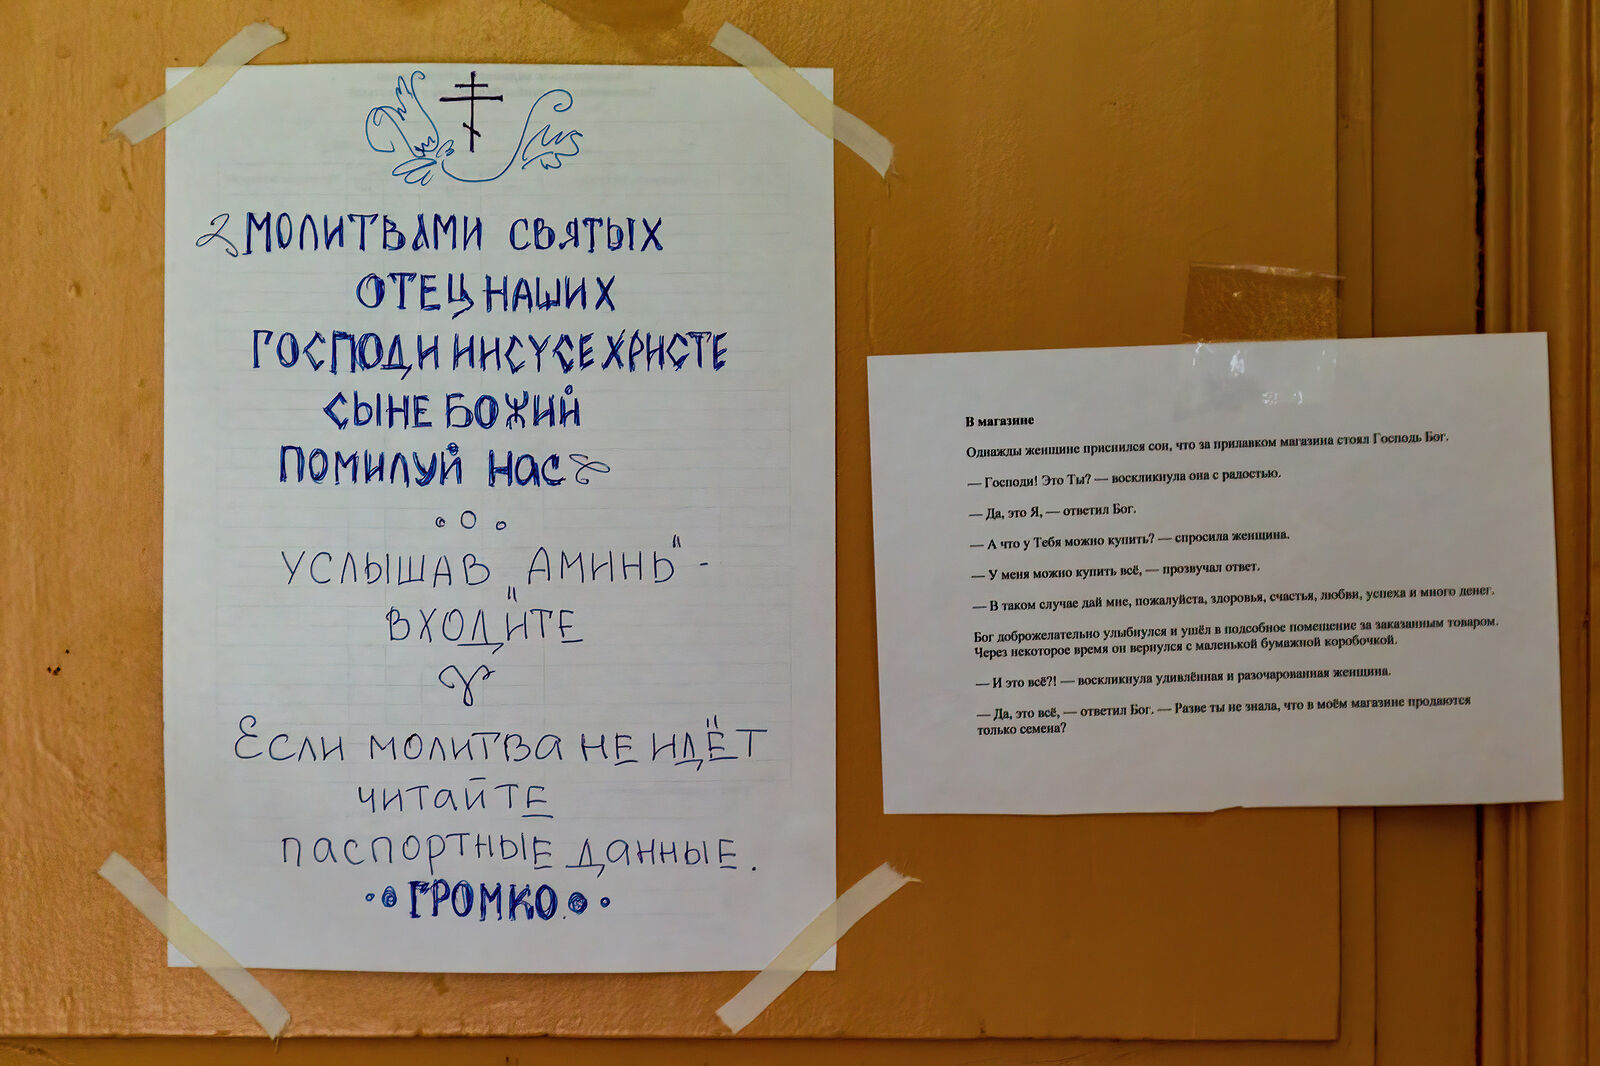 МОЛИТВАМИ СВЯТЫХ
ОТЕЦ НАШИХ
ГОСПОДИ ИИСУСЕ ХРИСТЕ
СЫНЕ БОЖИЙ
ПОМИЛУЙ НАС
УСЛЫШАВ „АМИНЬ" -
ВХОДИТЕ
ЕСЛИ МОЛИТВА НЕ ИДЁТ
ЧИТАЙТЕ
ПАСПОРТНЫЕ ДАННЫЕ.
ГРОМКО
В магазине
Однажды женщине приснился сон, что за прилавком магазина стоял Господь Бог.
— Господи! Это Ты? — воскликнула она с радостью.
— Да, это Я, — ответил Бог.
— А что у Тебя можно купить? — спросила женщина.
— У меня можно купить всё, — прозвучал ответ.
— В таком случае дай мне, пожалуйста, здоровья, счастья, любви, успеха и много денег.
Бог доброжелательно улыбнулся и ушёл в подсобное помещение за заказанным товаром.
Через некоторое время он вернулся с маленькой бумажной коробочкой.
— И это всё?! — воскликнула удивлённая и разочарованная женщина.
— Да, это всё, — ответил Бог. — Разве ты не знала, что в моём магазине продаются
только семена?